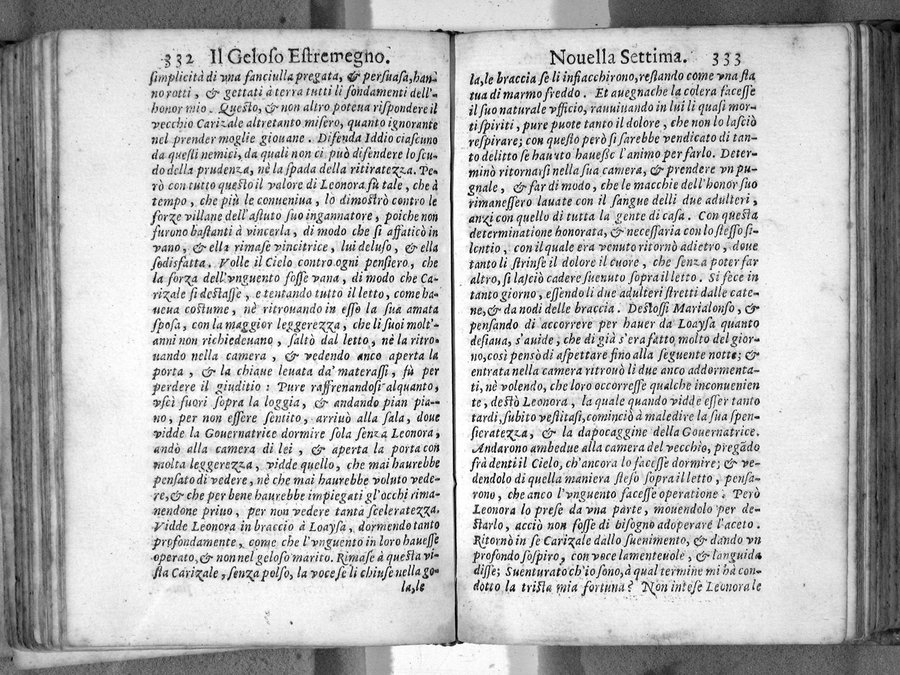 332 Il Geloso Estremegno.
simplicità di vna fanciulla pregata, & persuasa, han-
no rotti, & gettati à terra tutti li fondamenti dell'
honor mio. Questo, & non altro poteua rispondere il
vecchio Carizale altretanto misero, quanto ignorante
nel prender moglie giouane. Difenda Iddio ciascuno
da questi nemici, da quali non ci può difendere lo scu-
do della prudenza, nè la spada della ritiratezza. Pe-
rò con tutto questo il valore di Leonora fù tale, che à
tempo, che più le conueniua, lo dimostrò contro le
forze villane dell'astuto suo ingannatore, poiche non
furono bastanti à vincerla, di modo che si affaticò in
vano, & ella rimase vincitrice, lui deluso, & ella
sodisfatta. Volle il Cielo contro ogni pensiero, che
la forza dell'vnguento fosse vana, di modo che Ca-
rizale si destasse, e tentando tutto il letto, come ha-
ueua costume, nè ritrouando in esso la sua amata
sposa, con la maggior leggerezza, che li suoi molt'
anni non richiedeuano, saltò dal letto, nè la ritro-
uando nella camera, & vedendo anco aperta la
porta, & la chiaue leuata da' materassi, fù per
perdere il giuditio: Pure raffrenandosi alquanto,
vscì fuori sopra la loggia, & andando pian pia-
no, per non essere sentito, arriuò alla sala, doue
vidde la Gouernatrice dormire sola senza Leonora,
andò alla camera di lei, & aperta la porta con
molta leggerezza, vidde quello, che mai haurebbe
pensato di vedere, nè che mai haurebbe voluto vede-
re, & che per bene haurebbe impiegati gl'occhi rima-
nendone priuo, per non vedere tanta sceleratezza.
Vidde Leonora in braccio à Loaysa, dormendo tanto
profondamente, come che l'vnguento in loro hauesse
operato, & non nel geloso marito. Rimase à questa vi-
sta Carizale, senza polso, la voce se li chiuse nella go-
la, le
Nouella Settima. 333
la, le braccia se li infiacchirono, restando come vna sta
tua di marmo freddo. Et auegnache la colera facesse
il suo naturale vfficio, rauuiuando in lui li quasi mor-
ti spiriti, pure puote tanto il dolore, che non lo lasciò
respirare; con questo però si sarebbe vendicato di tan-
to delitto se hauuto hauesse l'animo per farlo. Deter-
minò ritornarsi nella sua camera, & prendere vn pu-
gnale, & far di modo, che le macchie dell'honor suo
rimanessero lauate con il sangue delli due adulteri,
anzi con quello di tutta la gente di casa. Con questa
determinatione honorata, & necessaria con lo stesso si-
lentio, con il quale era venuto ritornò adietro, doue
tanto li strinse il dolore il cuore, che senza poter far
altro, si lasciò cadere suenuto sopra il letto. Si fece in
tanto giorno, essendo li due adulteri stretti dalle cate-
ne, & da nodi delle braccia. Destossi Marialonso, &
pensando di accorrere per hauer da Loaysa quanto
desiaua, s'auide, che di già s'era fatto molto del gior-
no, così pensò di aspettare fino alla seguente notte; &
entrata nella camera ritrouò li due anco addormenta-
ti, nè volendo, che loro occorresse qualche inconuenien
te, destò Leonora, la quale quando vidde esser tanto
tardi, subito vestitasi, cominciò à maledire la sua spen-
sieratezza, & la dapocaggine della Gouernatrice.
Andarono ambedue alla camera del vecchio, pregãdo
frà denti il Cielo, ch'ancora lo facesse dormire; & ve-
dendolo di quella maniera steso sopra il letto, pensa-
rono, che anco l'vnguento facesse operatione. Però
Leonora lo prese da vna parte, mouendolo per de-
starlo, acciò non fosse di bisogno adoperare l'aceto.
Ritornò in se Carizale dallo suenimento, & dando vn
profondo sospiro, con voce lamenteuole, & languida
disse; Suenturato ch'io sono, à qual termine mi hà con-
dotto la trista mia fortuna? Non intese Leonora le